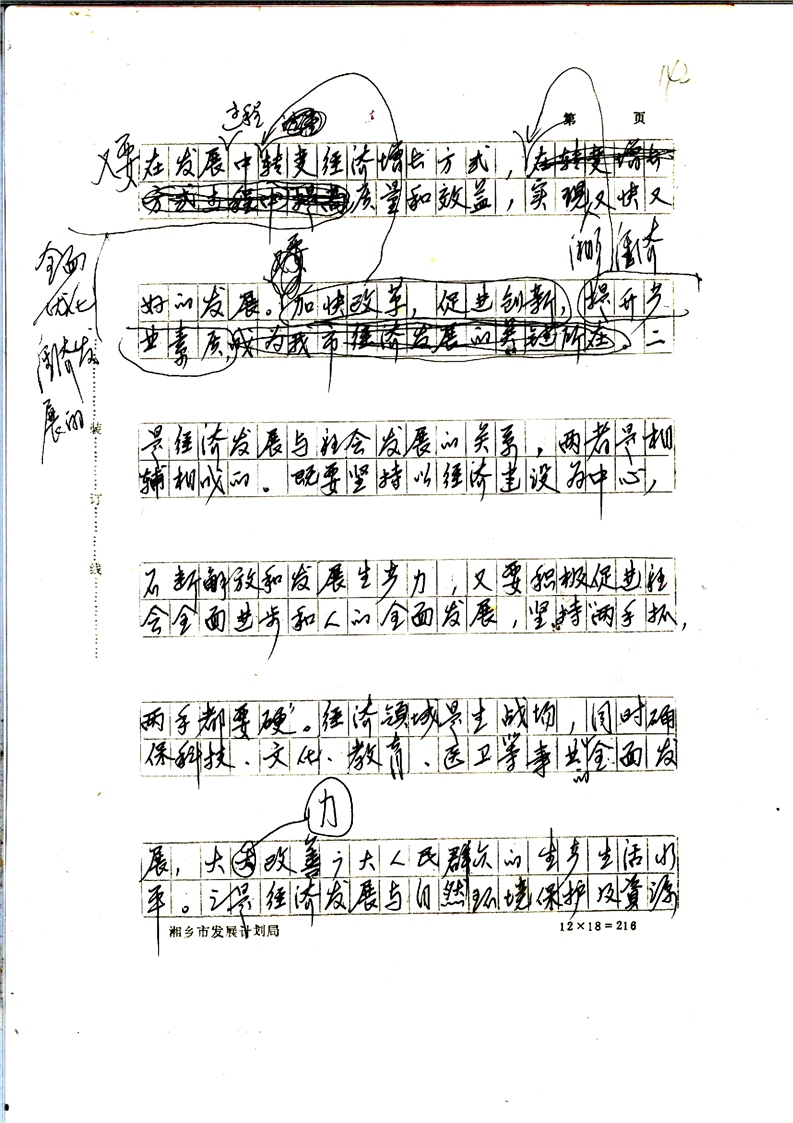 142
第 页
过程
又要在发展中转变经济增长方式，在转变增长
方式过程中提高质量和效益，实现又快又
全面
优化
经济发
展的
湘 经济
好的发展。加快改革，促进创新，提升产
业素质，成为我市经济发展的关键所在。二
是经济发展与社会发展的关系，两者是相
辅相成的。既要坚持以经济建设为中心，
不断解放和发展生产力，又要积极促进社
会全面进步和人的全面发展，坚持“两手抓，
装
订
线
两手都要硬”。经济领域是主战场，同时确
保科技、文化、教育、医卫等事业的全面发
力
展，大力改善广大人民群众的生产生活水
平。三是经济发展与自然环境保护及资源
湘乡市发展计划局
12×18=216